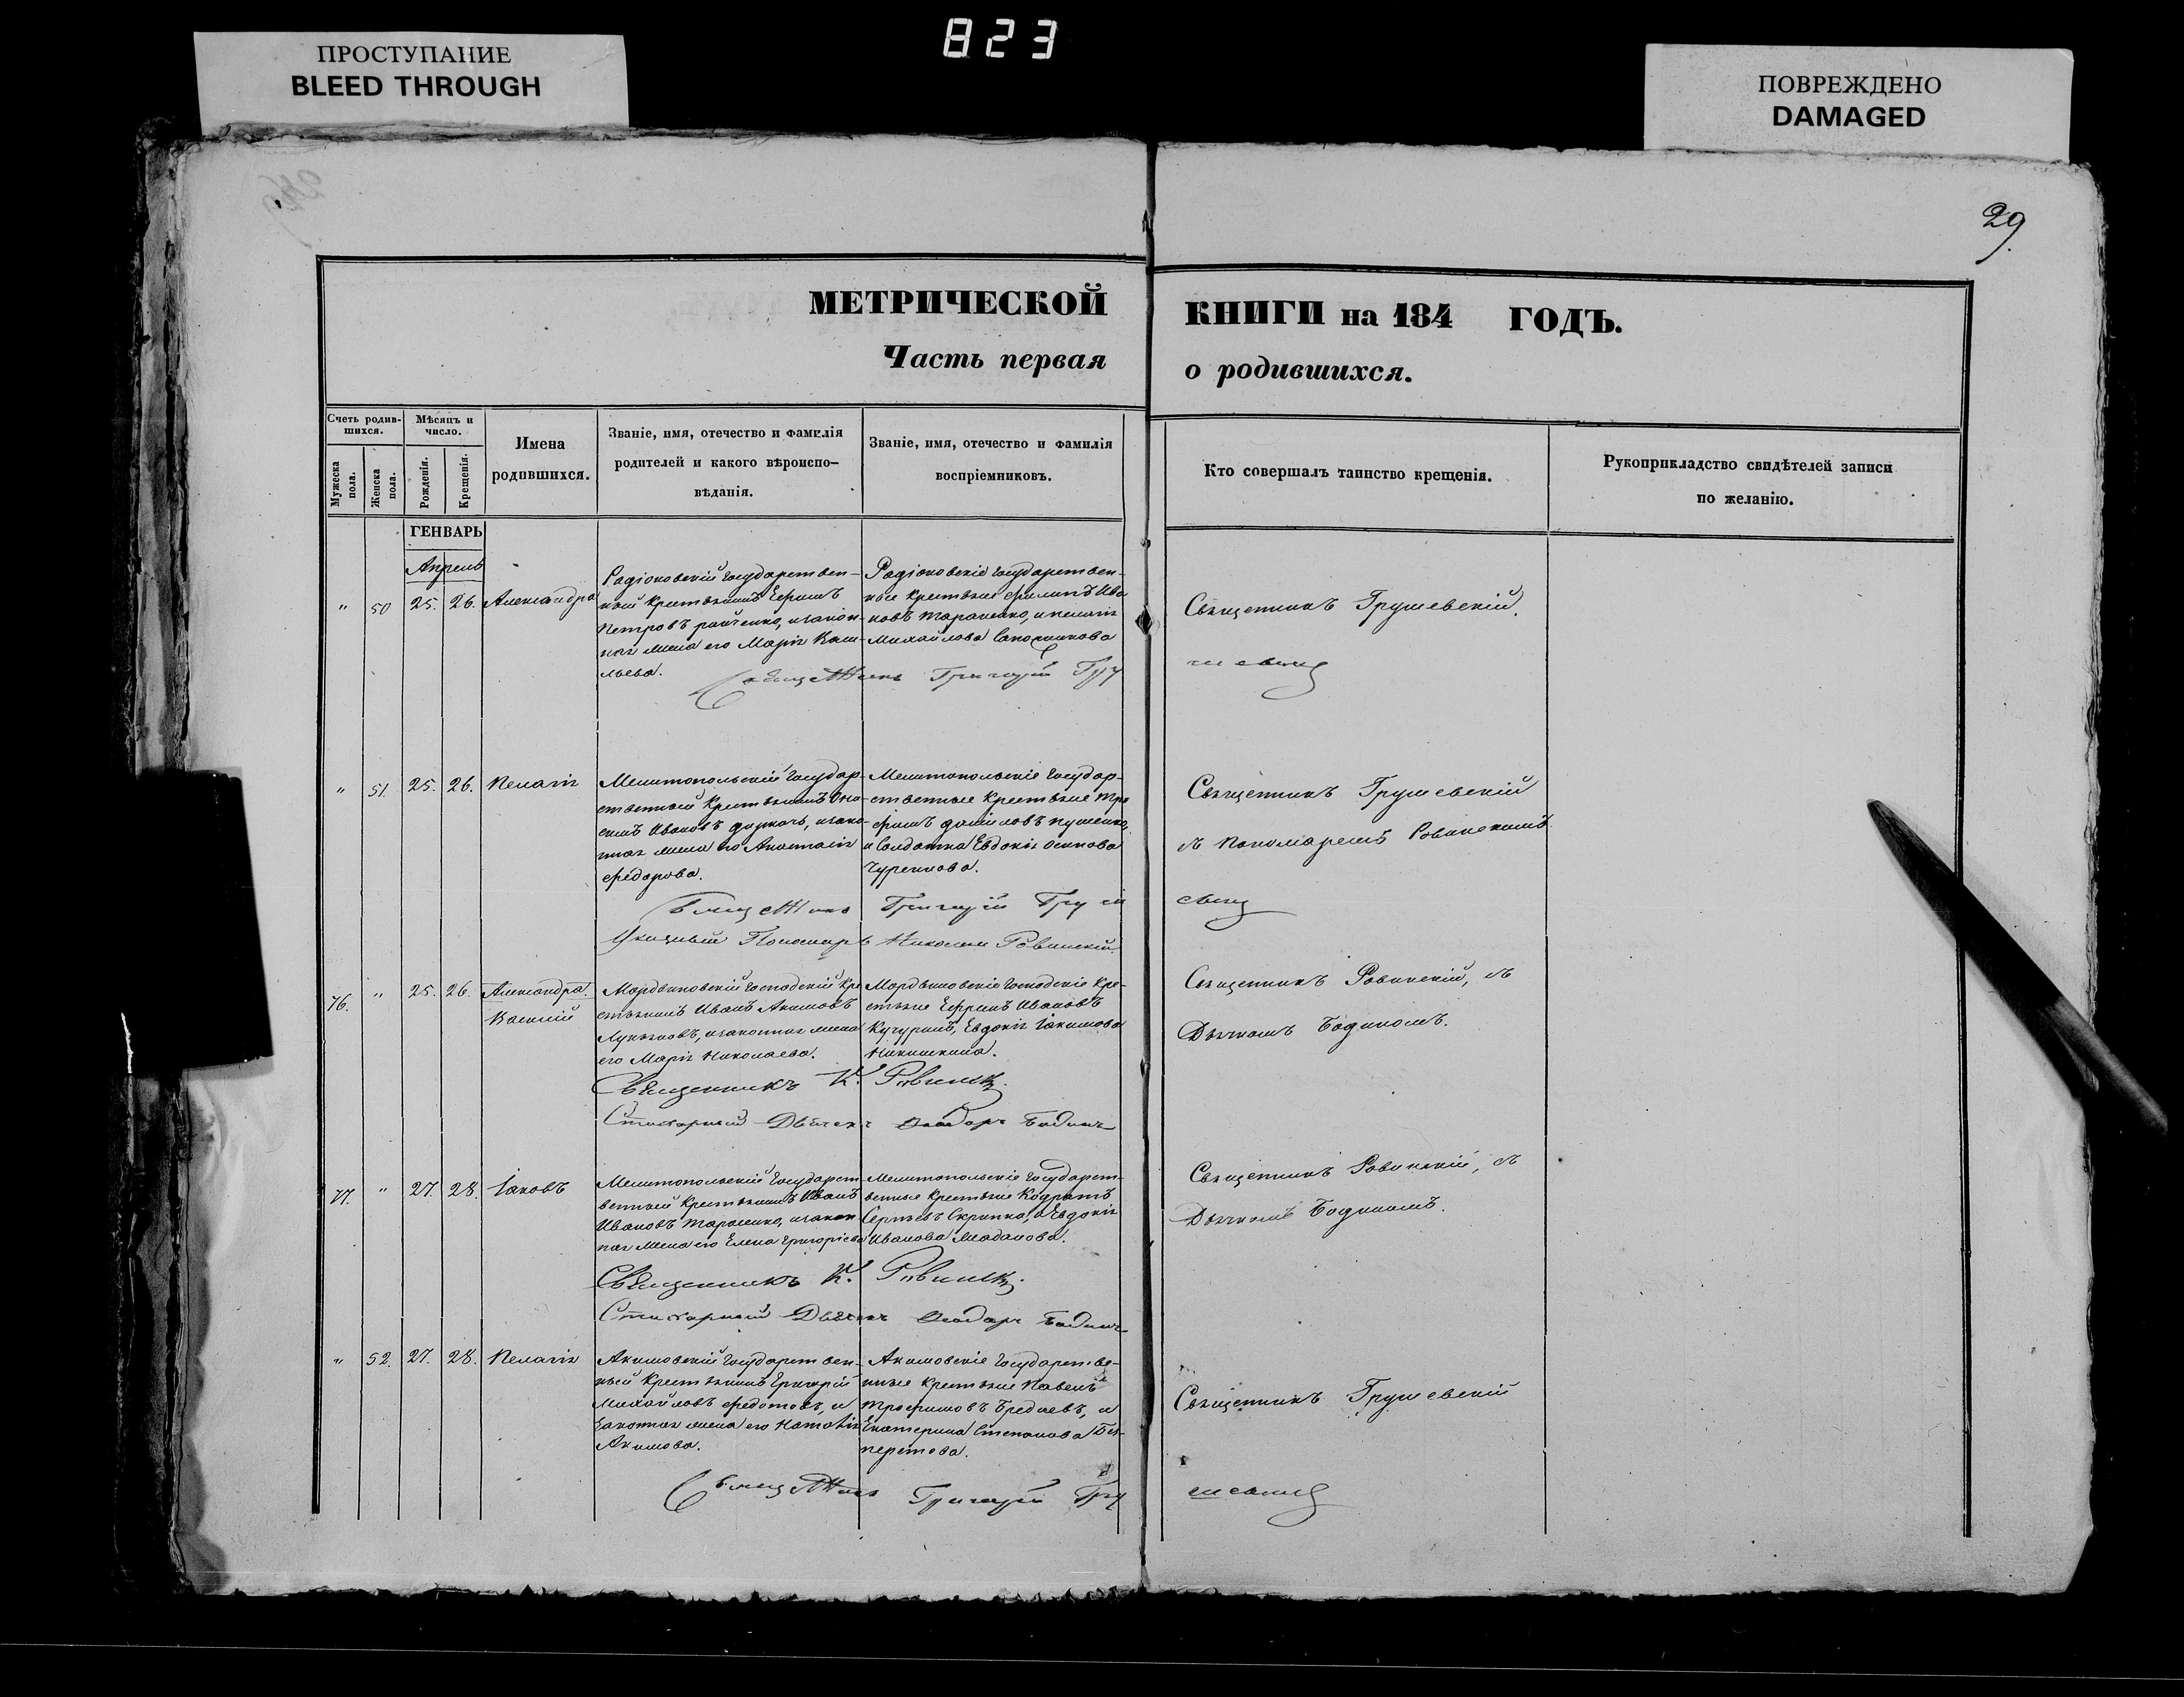 823
ПРОСТУПАНИЕ
BLEED THROUGH
ПОВРЕЖДЕНО
DAMAGED
29
МЕТРИЧЕСКОЙ КНИГИ на 184 ГОДЪ.
Часть первая о родившихся.
Счетъ родив-
шихся.
Мужеска пола.
Женска пола.
Мѣсяцъ и
число.
Рожденія.
Крещенія.
Имена
родившихся.
Званіе, имя, отечество и фамилія
родителей и какого вѣроиспо-
вѣданія.
Званіе, имя, отечество и фамилія
воспріемниковъ.
Кто совершалъ таинство крещенія.
Рукоприкладство свидѣтелей записи
по желанію.
ГЕНВАРЬ
Апрель
" 50 25. 26. Александра
Радіоновскій государствен-
ный крестьянинъ Ефимъ
Петровъ, изакон-
ная жена его Марія Васи-
льева.
Радіоновскіе государствен-
ные крестьяне Филипъ Ива
новъ Тараненко, и Пелагія
Михайлова Сапожникова
Священникъ Грушевскій.
Священникъ Григорій Грушевскій
" 51. 25. 26. Пелагія
Мелитопольскій государ-
ственный крестьянинъ Они-
симъ Ивановъ, изако-
нная жена его Анастасія
Федорова.
Мелитопольскіе государ-
ственные крестьяне Тро
фимъ Даниловъ
и Солдатка Евдокія Осипова
Чуренкова.
Священникъ Грушевскій
съ Пономаремъ Ровинскимъ
Священникъ Григорій
Указный Пономарь Николай Ровинскій
76. " 25. 26. Александра.
Василій
Мордвиновскій господскій кре
стьянинъ Иванъ Акимовъ
Лукьяновъ, изаконная жена
его Марія Николаева.
Мордвиновскіе господскіе кре-
стьяне Ефимъ Ивановъ
Евдокія Іакимова
Никишкина.
Священникъ Ровинскій, съ
Дьячкомъ Бодиномъ.
Священникъ К. Ровинскій
Стихарный Дьячекъ Ѳеодоръ Бодинъ
77. " 27. 28. Іаковъ
Мелитопольскій государст-
венный крестьянинъ Иванъ
Ивановъ Тараненко, изакон
ная жена его Елена Григорьева
Мелитопольскіе государст-
венные крестьяне Кодратъ
Сергѣевъ Скрипка, и Евдокія
Иванова
Священникъ Ровинскій, съ
Дьячкомъ Бодиномъ.
Священникъ К. Ровинскій
Стихарный Дьячекъ Ѳеодоръ Бодинъ
" 52. 27. 28. Пелагія
Акимовскій государствен-
ный крестьянинъ Григорій
Михайловъ Федотовъ, и
законная жена его Наталія
Акимова.
Акимовскіе государстве-
нные крестьяне Павелъ
Трофимовъ, и
Екатерина Степанова
Священникъ Грушевскій
Священникъ Григорій Грушевскій